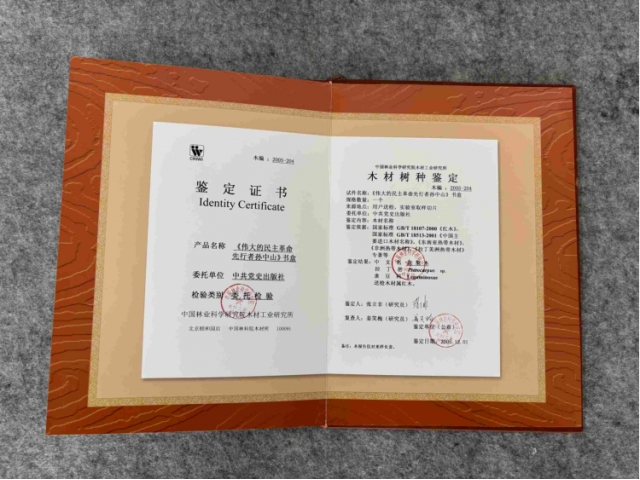 木编：2009-204
鉴 定 证 书
Identity Certificate
产品名称：《伟大的民主革命
先行者孙中山》书盒
委托单位：中共党史出版社
检验类别：委 托 检 验
中国林业科学研究院木材工业研究所
中国林业科学研究院木材工业研究所
木 材 树 种 鉴 定
木编：2009-204
试件名称：《伟大的民主革命先行者孙中山》书盒
规格数量：一个
委托单位：中共党史出版社
鉴定内容：木材名称
鉴定依据：国家标准 GB/T 18107-2000《红木》、
国家标准 GB/T 18513-2001《中国主
要进口木材名称》、《东南亚热带木材》、
《非洲热带木材》、《拉丁美洲热带木材》
专著等
鉴定结果：中 文
拉 丁 Pterocarpus sp.
送检木材属红木。
鉴定人：（研究员）
复查人：姜笑梅（研究员）
鉴定单位（公章）
鉴定日期：